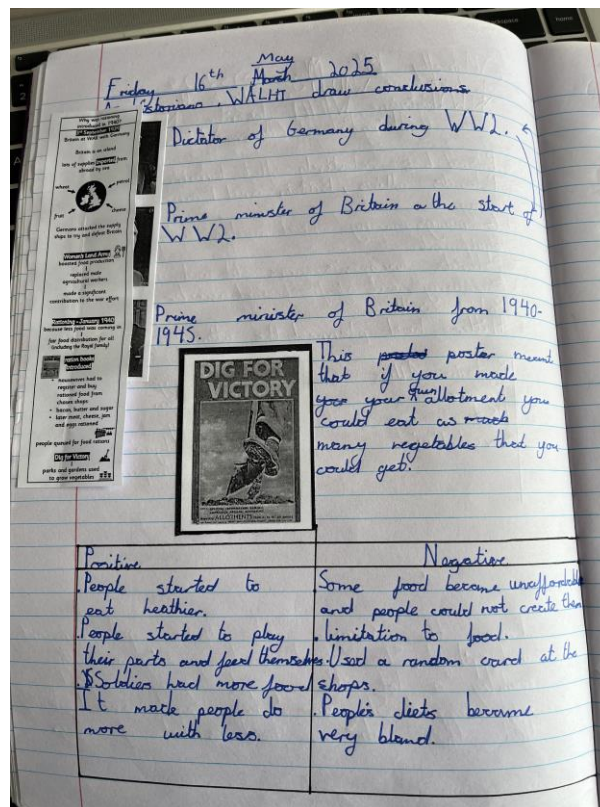 May
Friday 16th March 2025
Historians, WALHT draw conclusions
Why was rationing
introduced in 1940?
3rd September 1939
Britain at WAR with Germany
Britain is an island
lots of supplies imported from
abroad by sea
wheat
petrol
fruit
cheese
Germans attacked the supply
ships to try and defeat Britain
Women's Land Army
boosted food production
replaced male
agricultural workers
made a significant
contribution to the war effort
Rationing - January 1940
because less food was coming in
fair food distribution for all
(including the Royal family)
ration books
introduced
housewives had to
register and buy
rationed food from
chosen shops
bacon, butter and sugar
later meat, cheese, jam
and eggs rationed
people queued for food rations
Dig for Victory
parks and gardens used
to grow vegetables
Dictator of Germany during WW2.
Prime minister of Britain a the start of
WW2.
Prime minister of Britain from 1940-
1945.
DIG FOR
VICTORY
ALLOTMENTS
This poster meant
that if you made
your your own allotment you
could eat as much
many vegetables that you
could get.
Positive
People started to
eat heathier.
People started to play
their parts and feed themselves.
Soldiers had more food
It made people do
more with less.
Negative
Some food became unaffordable
and people could not create them
limitation to food.
Used a random card at the
shops.
People's diets became
very bland.